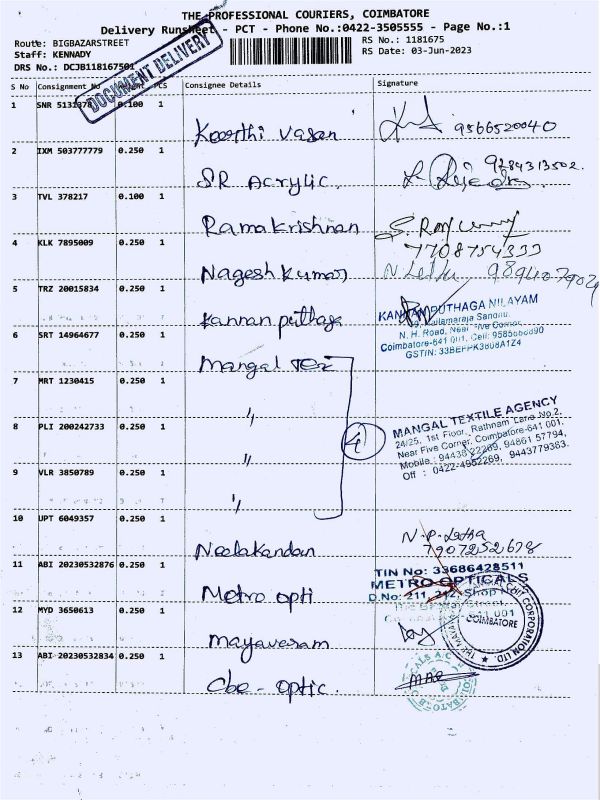 THE PROFESSIONAL COURIERS, COIMBATORE
Delivery Runsheet - PCT - Phone No.:0422-3505555 - Page No.:1
Route: BIGBAZARSTREET
Staff: KENNADY
DRS No.: DCJB118167501
RS No.: 1181675
RS Date: 03-Jun-2023
DOCUMENT DELIVERY
S No Consignment No PCS Consignee Details Signature
1 SNR 5131378 0.100 1
Keerthi vasan 9566520040
2 IXM 503777779 0.250 1
SR Acrylic. 9284313502.
3 TVL 378217 0.100 1
Ramakrishnan
4 KLK 7895009 0.250 1
7708754333
Nagesh kumar
5 TRZ 20015834 0.250 1
Kannan puthaga
KANNAN PUTHAGA NILAYAM
N. H. Road, Near Five Corner,
Coimbatore-641 001. Cell:
GSTIN:
6 SRT 14964677 0.250 1
Mangal Tex
7 MRT 1230415 0.250 1
"
8 PLI 200242733 0.250 1
"
4
MANGAL TEXTILE AGENCY
24/25, 1st Floor, Rathnam Lane No.2,
Near Five Corner, Coimbatore-641 001.
Mobile : 94438 22269, 94861 57794,
Off : 0422-4952269, 9443779363.
9 VLR 3850789 0.250 1
"
10 UPT 6049357 0.250 1
Neelakandan
N.P. Letha
7907252678
11 ABI 20230532876 0.250 1
Metro opti
TIN No: 33686428511
METRO OPTICALS
D.No: 211, 212, Shop
12 MYD 3650613 0.250 1
Mayavaram
COIMBATORE
CORPORATION LTD.
13 ABI 20230532834 0.250 1
Cbe - optic.